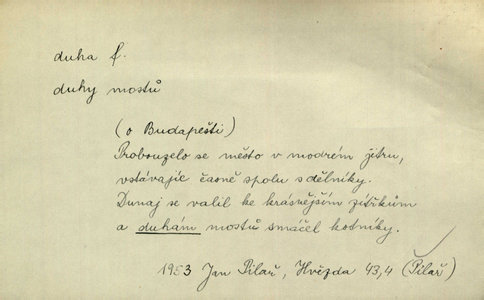 duha f.
duhy mostů
(o Budapešti)
Probouzelo se město v modrém jitru,
vstávajíc časně spolu s dělníky.
Dunaj se valil ke krásnějším zítřkům
a duhám mostů smáčel kotníky.
1953 Jan Pilař, Hvězda 43,4 (Pilař)